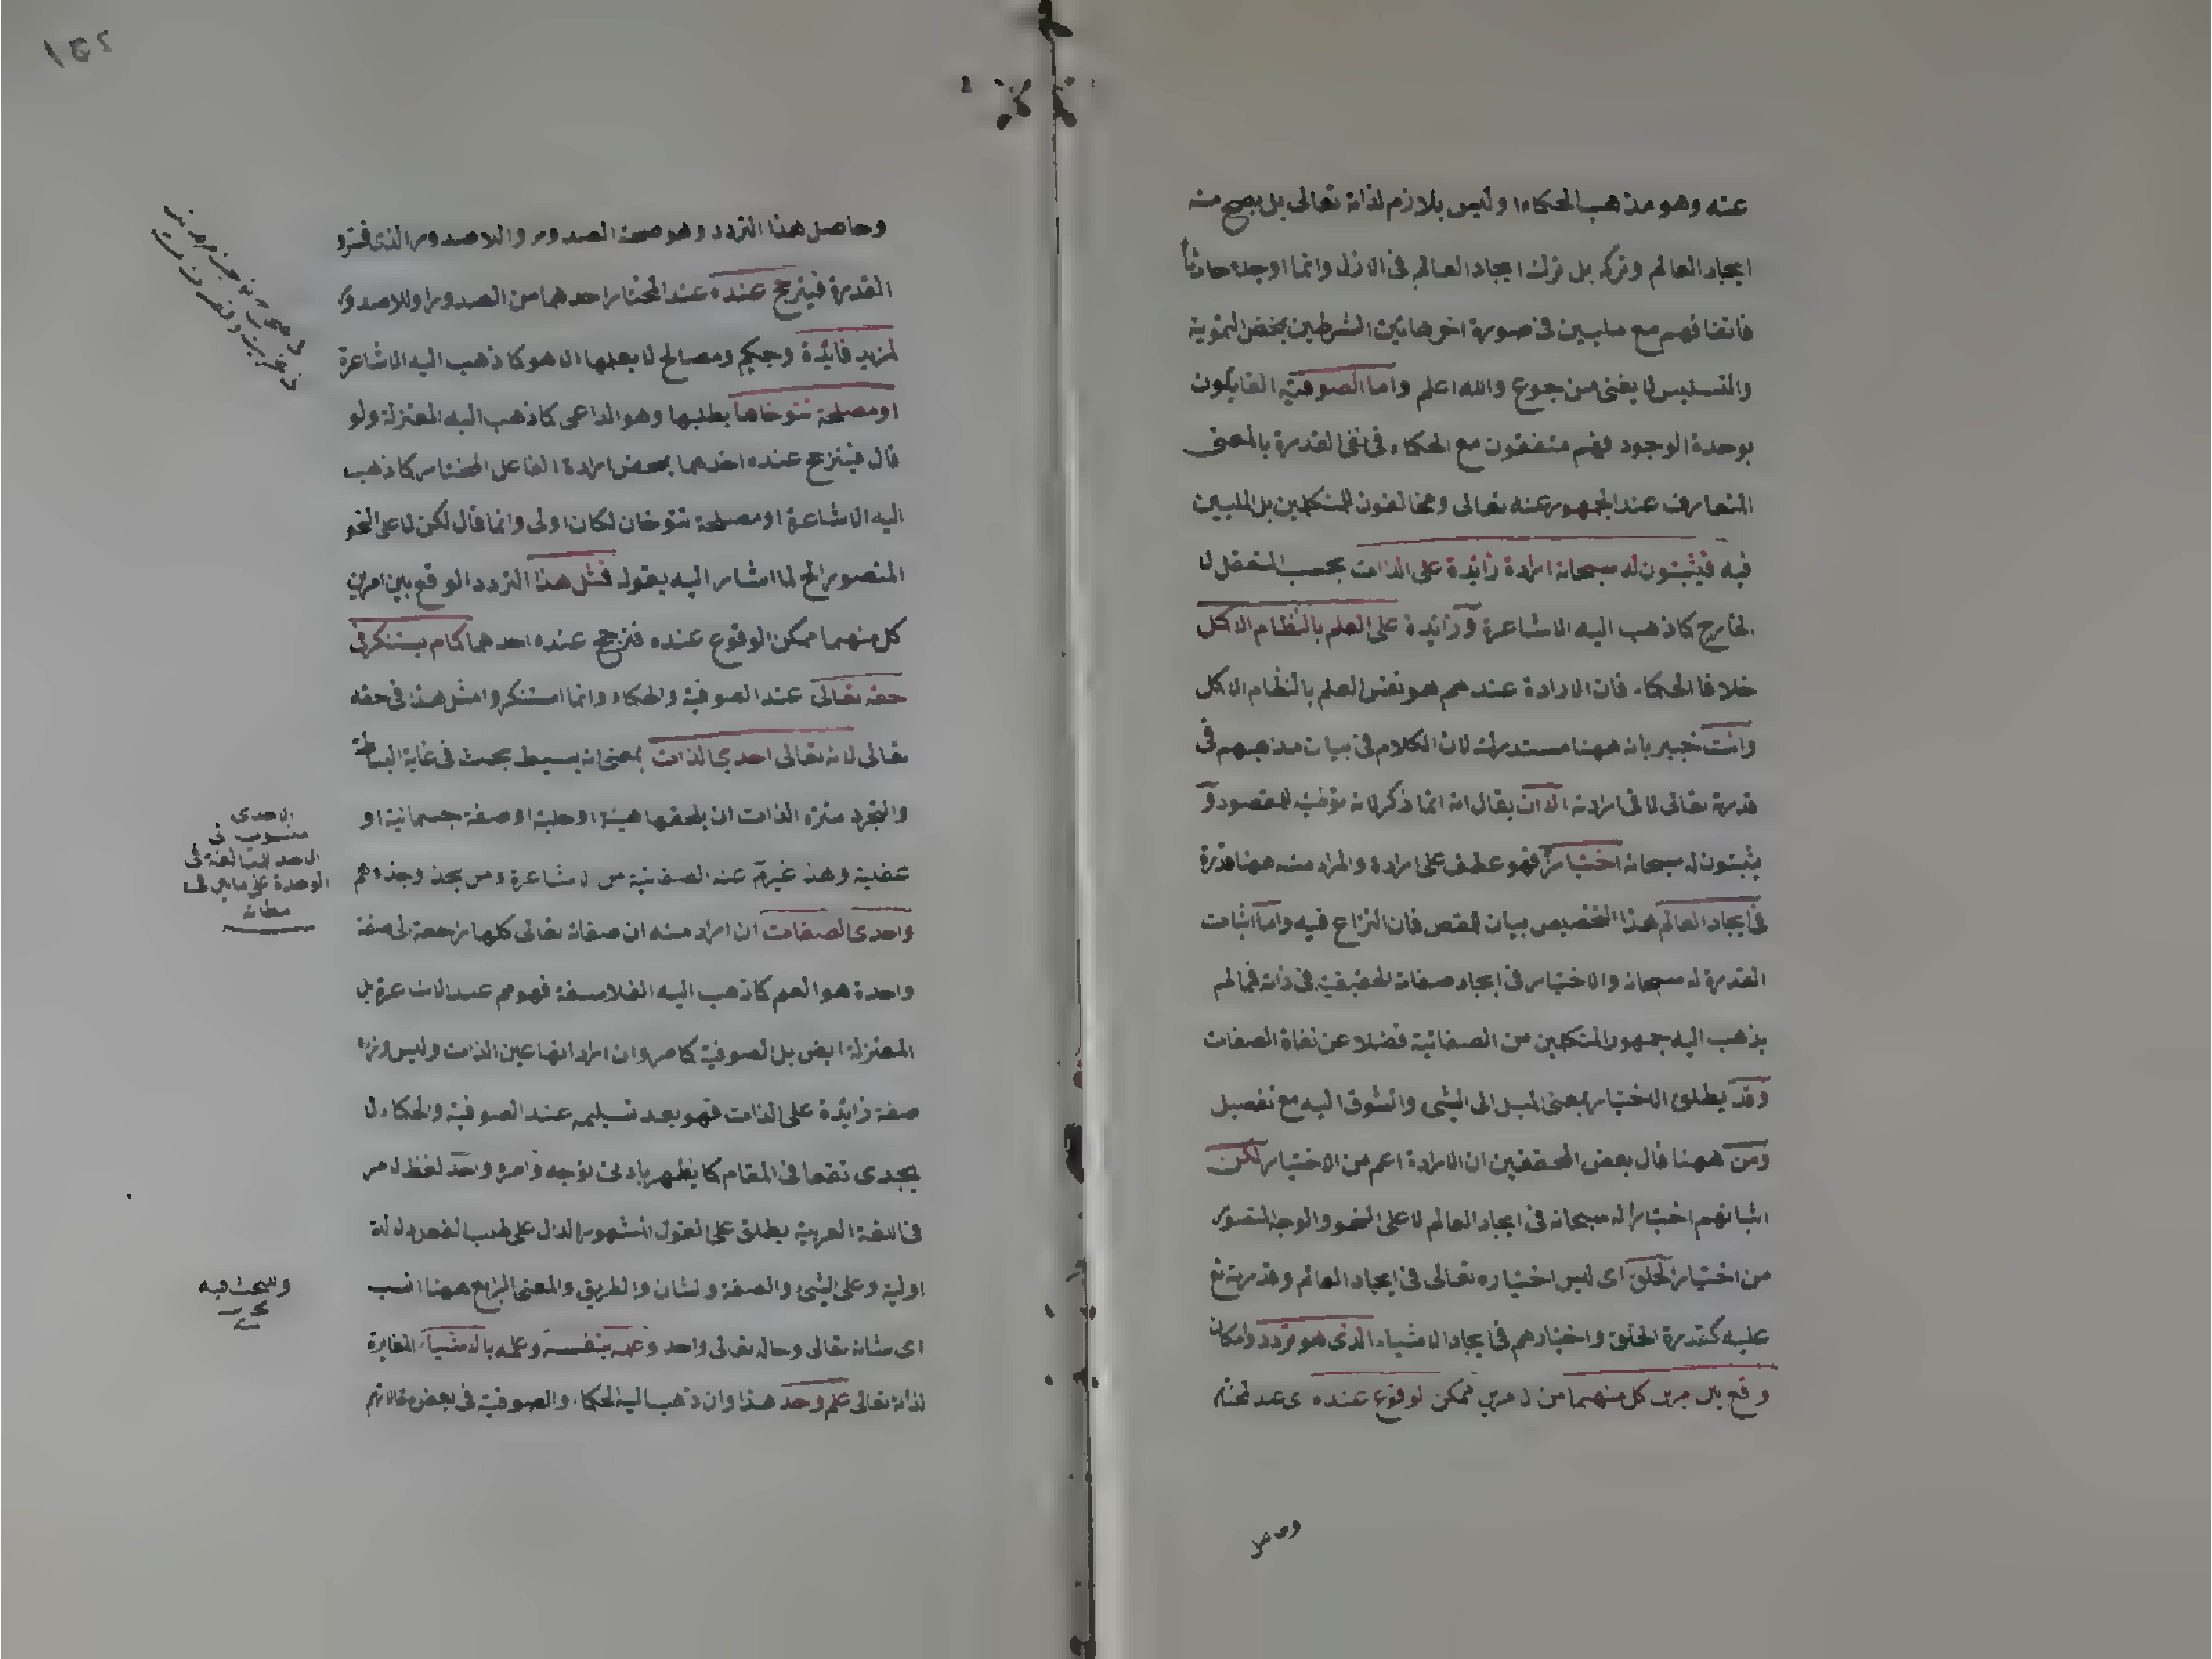 عنه وهو مذهب الحكماء او ليس بلازم لذاته تعالى بل يصح منه
ايجاد العالم وتركه بل ترك ايجاد العالم في الازل وانما اوجده حادثا
فاتفاقهم مع مليين في صورة اخرهاتين الشرطين بمحض التموية
والتلبيس لا يغني من جوع والله اعلم واما الصوفية القايلون
بوحدة الوجود فهم متفقون مع الحكماء في نفي القدرة بالمعنى
المتعارف عند الجمهور عنه تعالى ومخالفون للمتكلمين بل المليين
فيه فيثبتون له سبحانه ارادة زايدة على الذات بحسب التعقل لا
الخارج كما ذهب اليه الاشاعرة وزايدة على العلم بالنظام الاكمل
خلافا للحكماء فان الارادة عندهم هو نفس العلم بالنظام الاكمل
وانت خبير بانه ههنا مستدرك لان الكلام في بيان مذهبهم في
قدرته تعالى لا في ارادته الا ان يقال انه انما ذكر لانه توطئة للمقصود و
يثبتون له سبحانه اختيارا فهو عطف على ارادة والمراد منه ههنا قدرة
في ايجاد العالم هذا التخصيص بيان للمقص فان النزاع فيه واما اثبات
القدرة له سبحانه والاختيار في ايجاد صفاته الحقيقية في ذاته فمما لم
يذهب اليه جمهور المتكلمين من الصفاتية فضلا عن نفاة الصفات
وقد يطلق الاختيار بمعنى الميل الى الشي والشوق اليه مع تفصيل
ومن ههنا قال بعض المحققين ان الارادة اعم من الاختيار لكن
اثباتهم اختيارا له سبحانه في ايجاد العالم لا على النحو والوجه المتصور
من اختيار الخلق اى ليس اختياره تعالى في ايجاد العالم وقدرته تع
عليه كقدرة الخلق واختيارهم في ايجاد الاشياء الذى هو تردد وامكان
وقع بين امرين كل منهما من الامرين ممكن الوقوع عنده اى عند المختار
وحاصل
وحاصل هذا التردد وهو صحة الصدور واللاصدور الذى فسروا
القدرة فيترجح عنده عند المختار احدهما من الصدور او اللاصدور
لمزيد فايدة وحكم ومصالح لا يعلمها الا هو كما ذهب اليه الاشاعرة
او مصلحة تتوخاها يطلبها وهو الداعى كما ذهب اليه المعتزلة ولو
قال فيترجح عنده احدهما بمحض ارادة الفاعل المختار كما ذهب
اليه الاشاعرة او مصلحة تتوخان لكان اولى وانما قال لكن لا على النحو
المتصور الخ لما اشار اليه بقوله فمثل هذا التردد الوقع بين امرين
كل منهما ممكن الوقوع عنده فترجح عنده احدهما كما م يستنكر في
حقه تعالى عند الصوفية والحكماء وانما استنكروا مثل هذا في حقه
تعالى لانه تعالى احدي الذات بمعنى انه بسيط بحت في غاية البساطة
والتجرد منزه الذات ان يلحقها هيئة او حلية او صفة جسمانية او
عقلية وهذ غير م عند الصفاتية من الاشاعرة ومن يحذ وحذوهم
واحدى الصفات ان اراد منه ان صفاته تعالى كلها راجعة الى صفة
واحدة هو العلم كما ذهب اليه الفلاسفة فهو مم عند الاشاعرة بل
المعتزلة ايض بل الصوفية كما مر وان اراد انها عين الذات وليس وراء
صفة زايدة على الذات فهو بعد تسليمه عند الصوفية والحكماء لا
يجدى نفعا في المقام كما يظهر بادنى توجه وامره واحد لفظ الامر
في اللغة العربية يطلق على القول المشهور الدال على طلب الفعل دلالة
اولية وعلى الشي والصفة والشان والطريق والمعنى الرابع ههنا انسب
اى شانه تعالى وحاله تعالى واحد وعلمه بنفسه وعلمه بالاشياء المغايرة
لذاته تعالى علم وحد هذا وان ذهب اليه الحكماء والصوفية في بعض مقالاتهم
الاحدى
منسوب الى
الاحد للمبالغة في
الوحدة على ما بين في
مظانه
وللبحث فيه